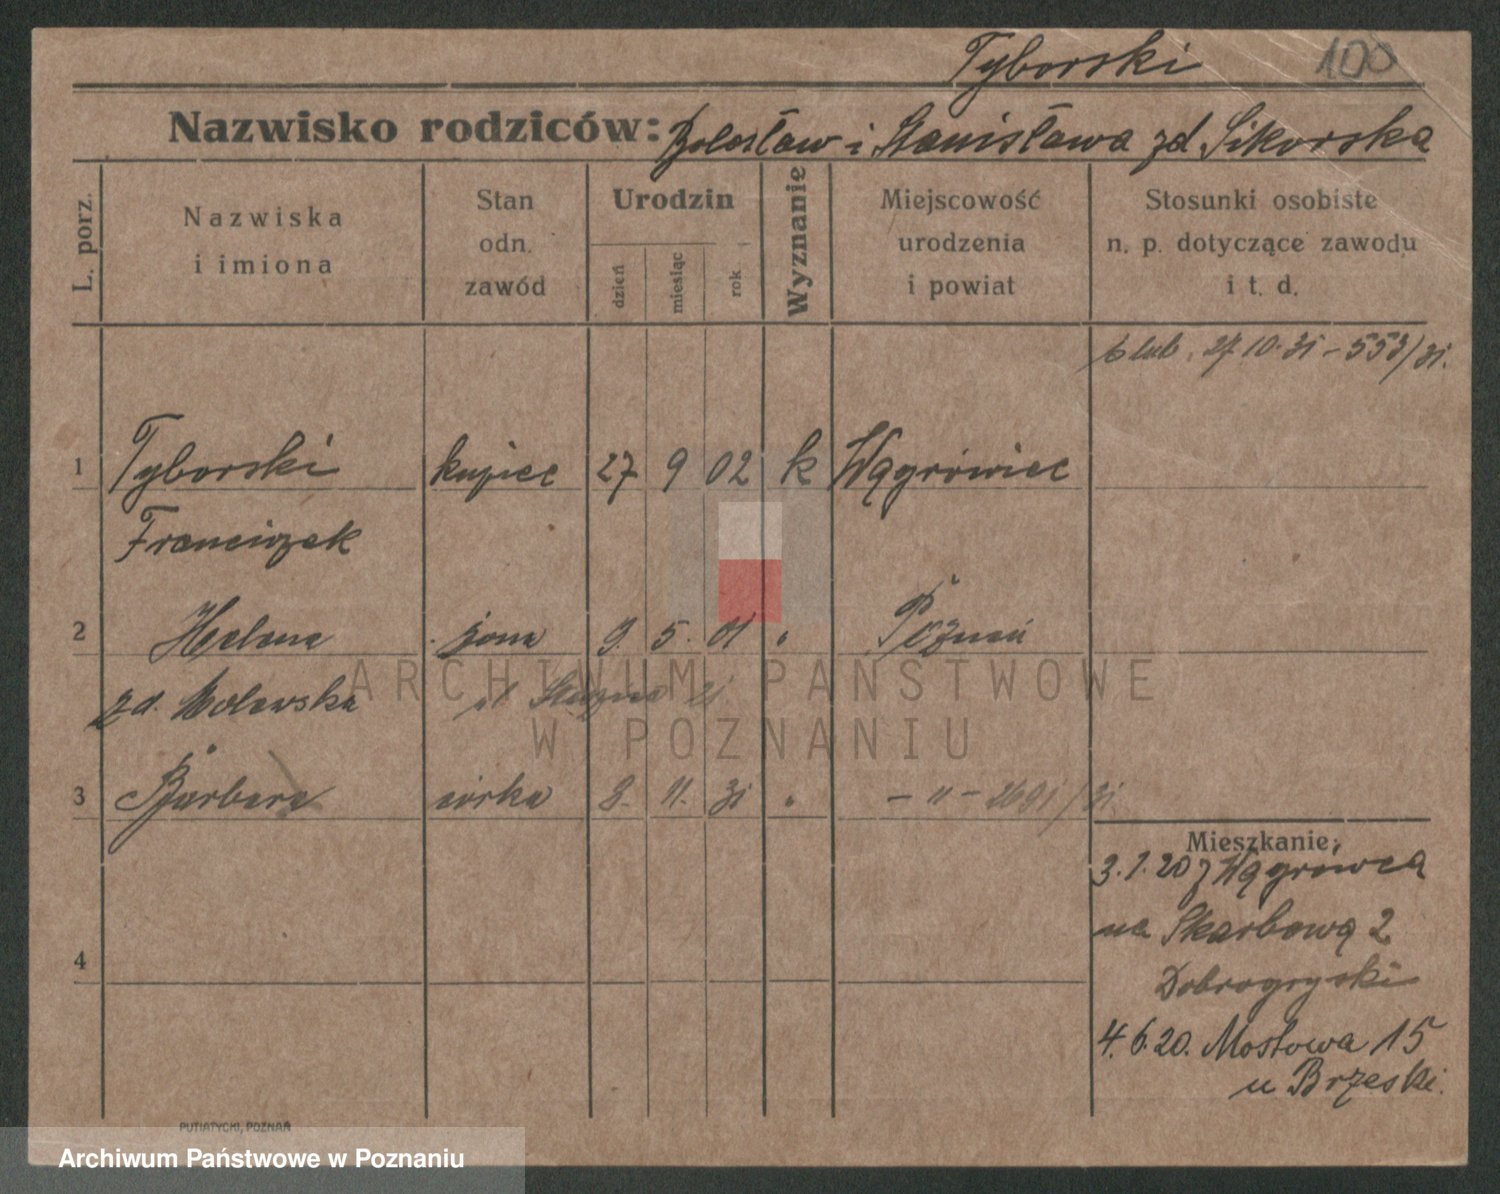 Tyborski 100
Nazwisko rodziców: Bolesław i Stanisława zd. Sikorska
L. porz.
Nazwiska
i imiona
Stan
odn.
zawód
Urodzin
dzień
miesiąc
rok
Wyznanie
Miejscowość
urodzenia
i powiat
Stosunki osobiste
n. p. dotyczące zawodu
i t. d.
ślub. 27.10.31 - 553/31.
1 Tyborski kupiec 27 9 02 k Wągrówiec
Franciszek
2 Helena żona 9. 5. 01 " Poznań
zd.
ul
3 Barbara córka 8. 11. 31 " - " - 2691/31
Mieszkanie:
3.1.20 z Wągrówca
na Skarbową 2
4
4.6.20. Mostowa 15
u Brzeski.
PUTIATYCKI, POZNAŃ
ARCHIWUM PAŃSTWOWE
W POZNANIU
Archiwum Państwowe w Poznaniu